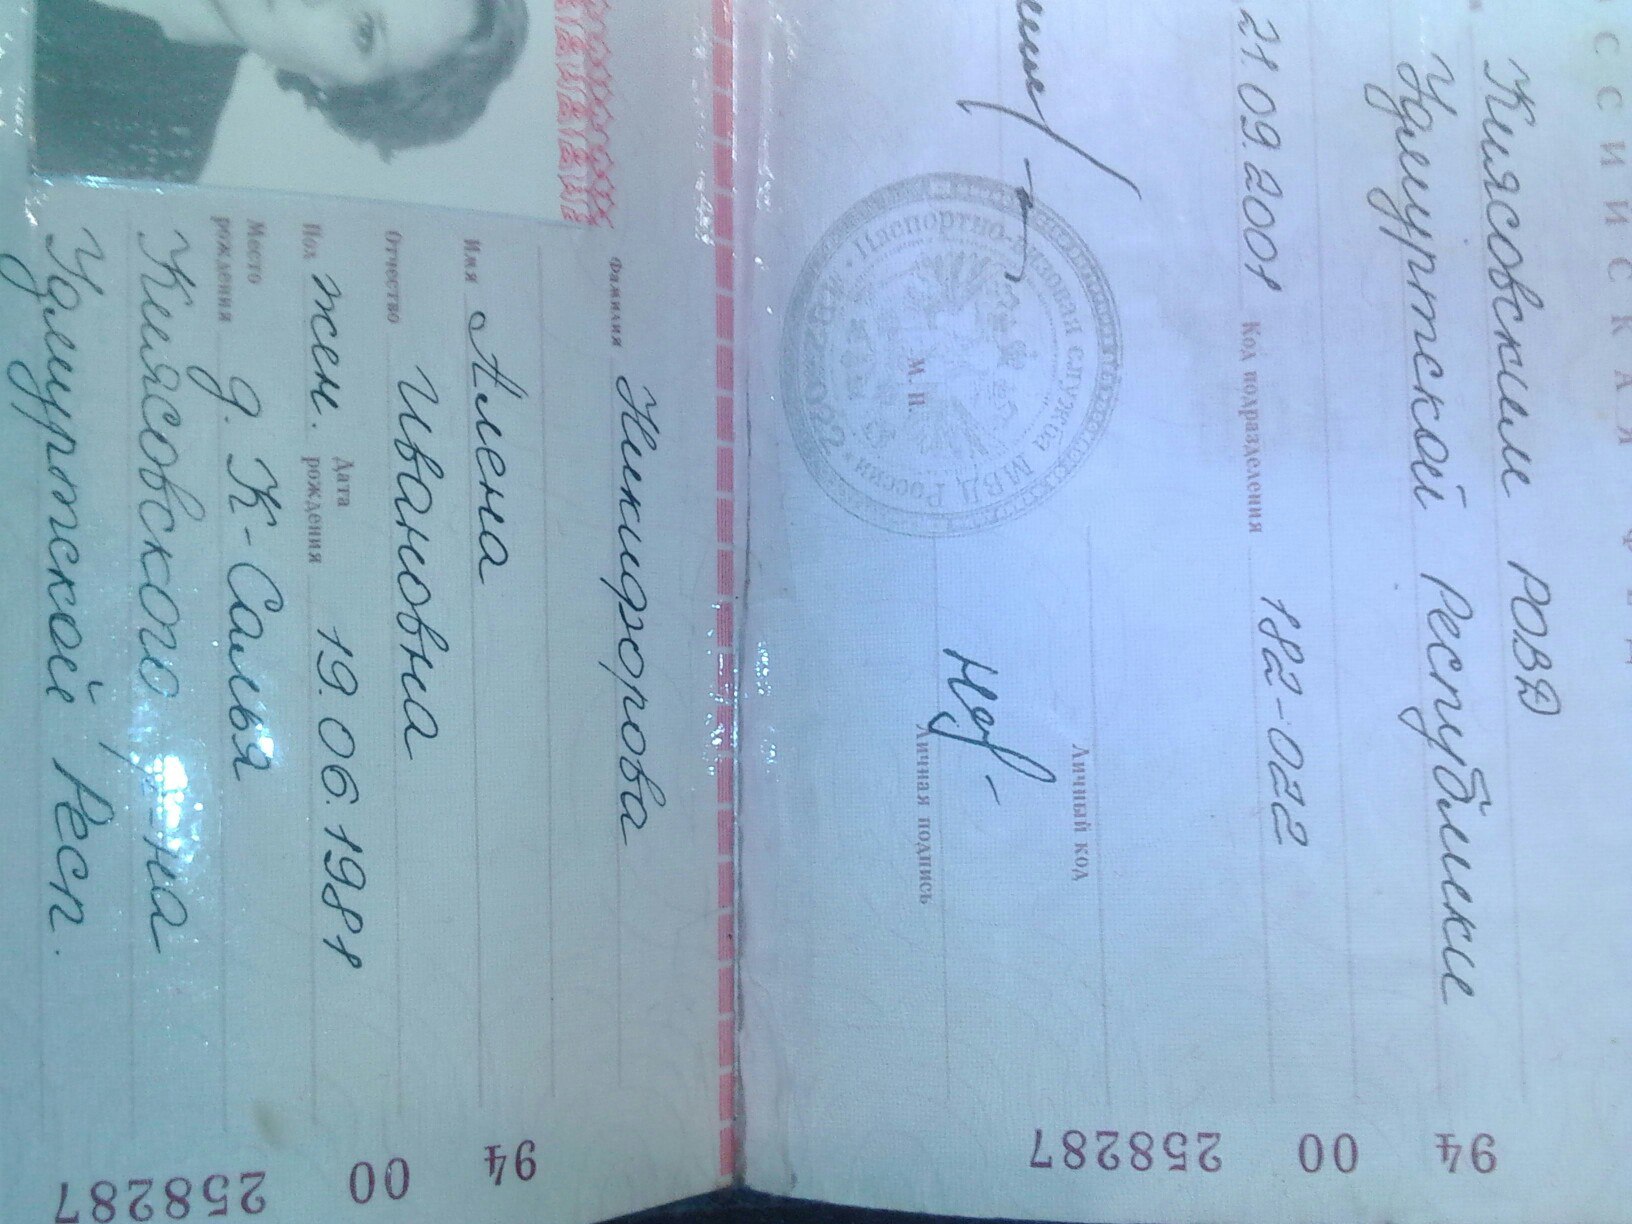 ССИЙСКАЯ ФЕД
Киясовским РОВД
Удмуртской Республики
21.09.2001 Код подразделения 182-022
Личный код
Личная подпись
Паспортно-визовая служба МВД России
182-022
М.П.
94 00 258287
Фамилия Никифорова
Имя Алена
Отчество Ивановна
Пол жен. Дата рождения 19.06.1981
Место рождения д. К-Салья
Киясовского р-на
Удмуртской Респ.
94 00 258287